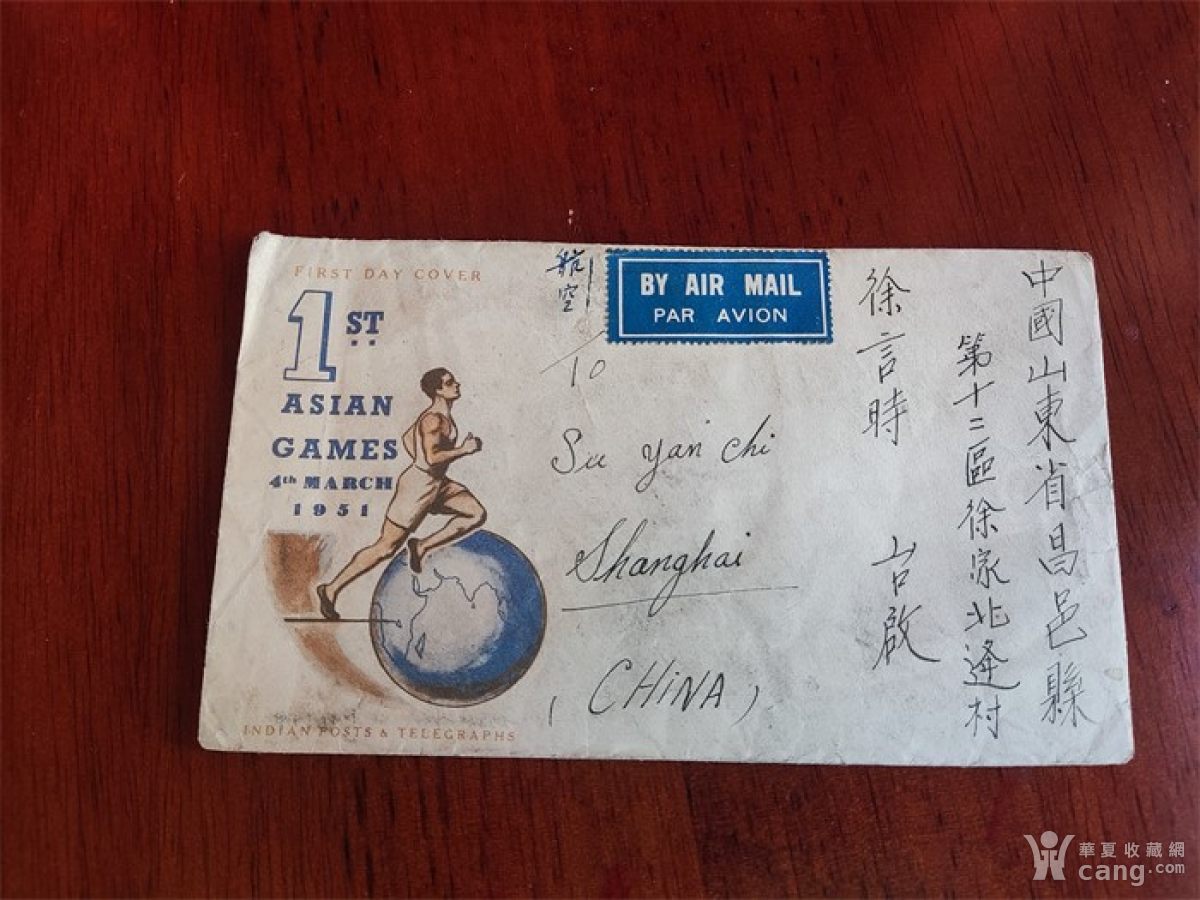 FIRST DAY COVER
1ST
ASIAN
GAMES
4th MARCH
1951
INDIAN POSTS & TELEGRAPHS
航空
BY AIR MAIL
PAR AVION
To
Su yan chi
Shanghai
(CHINA)
中國山東省昌邑縣
第十二區徐家北逄村
徐言時 台啟
華夏收藏網
cang.com